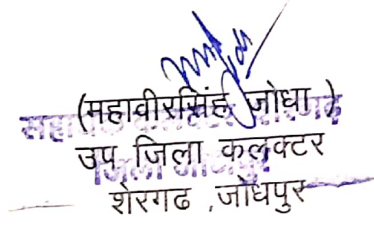 (महावीरसिंह जोधा )
उप जिला कलक्टर
शेरगढ ,जोधपुर